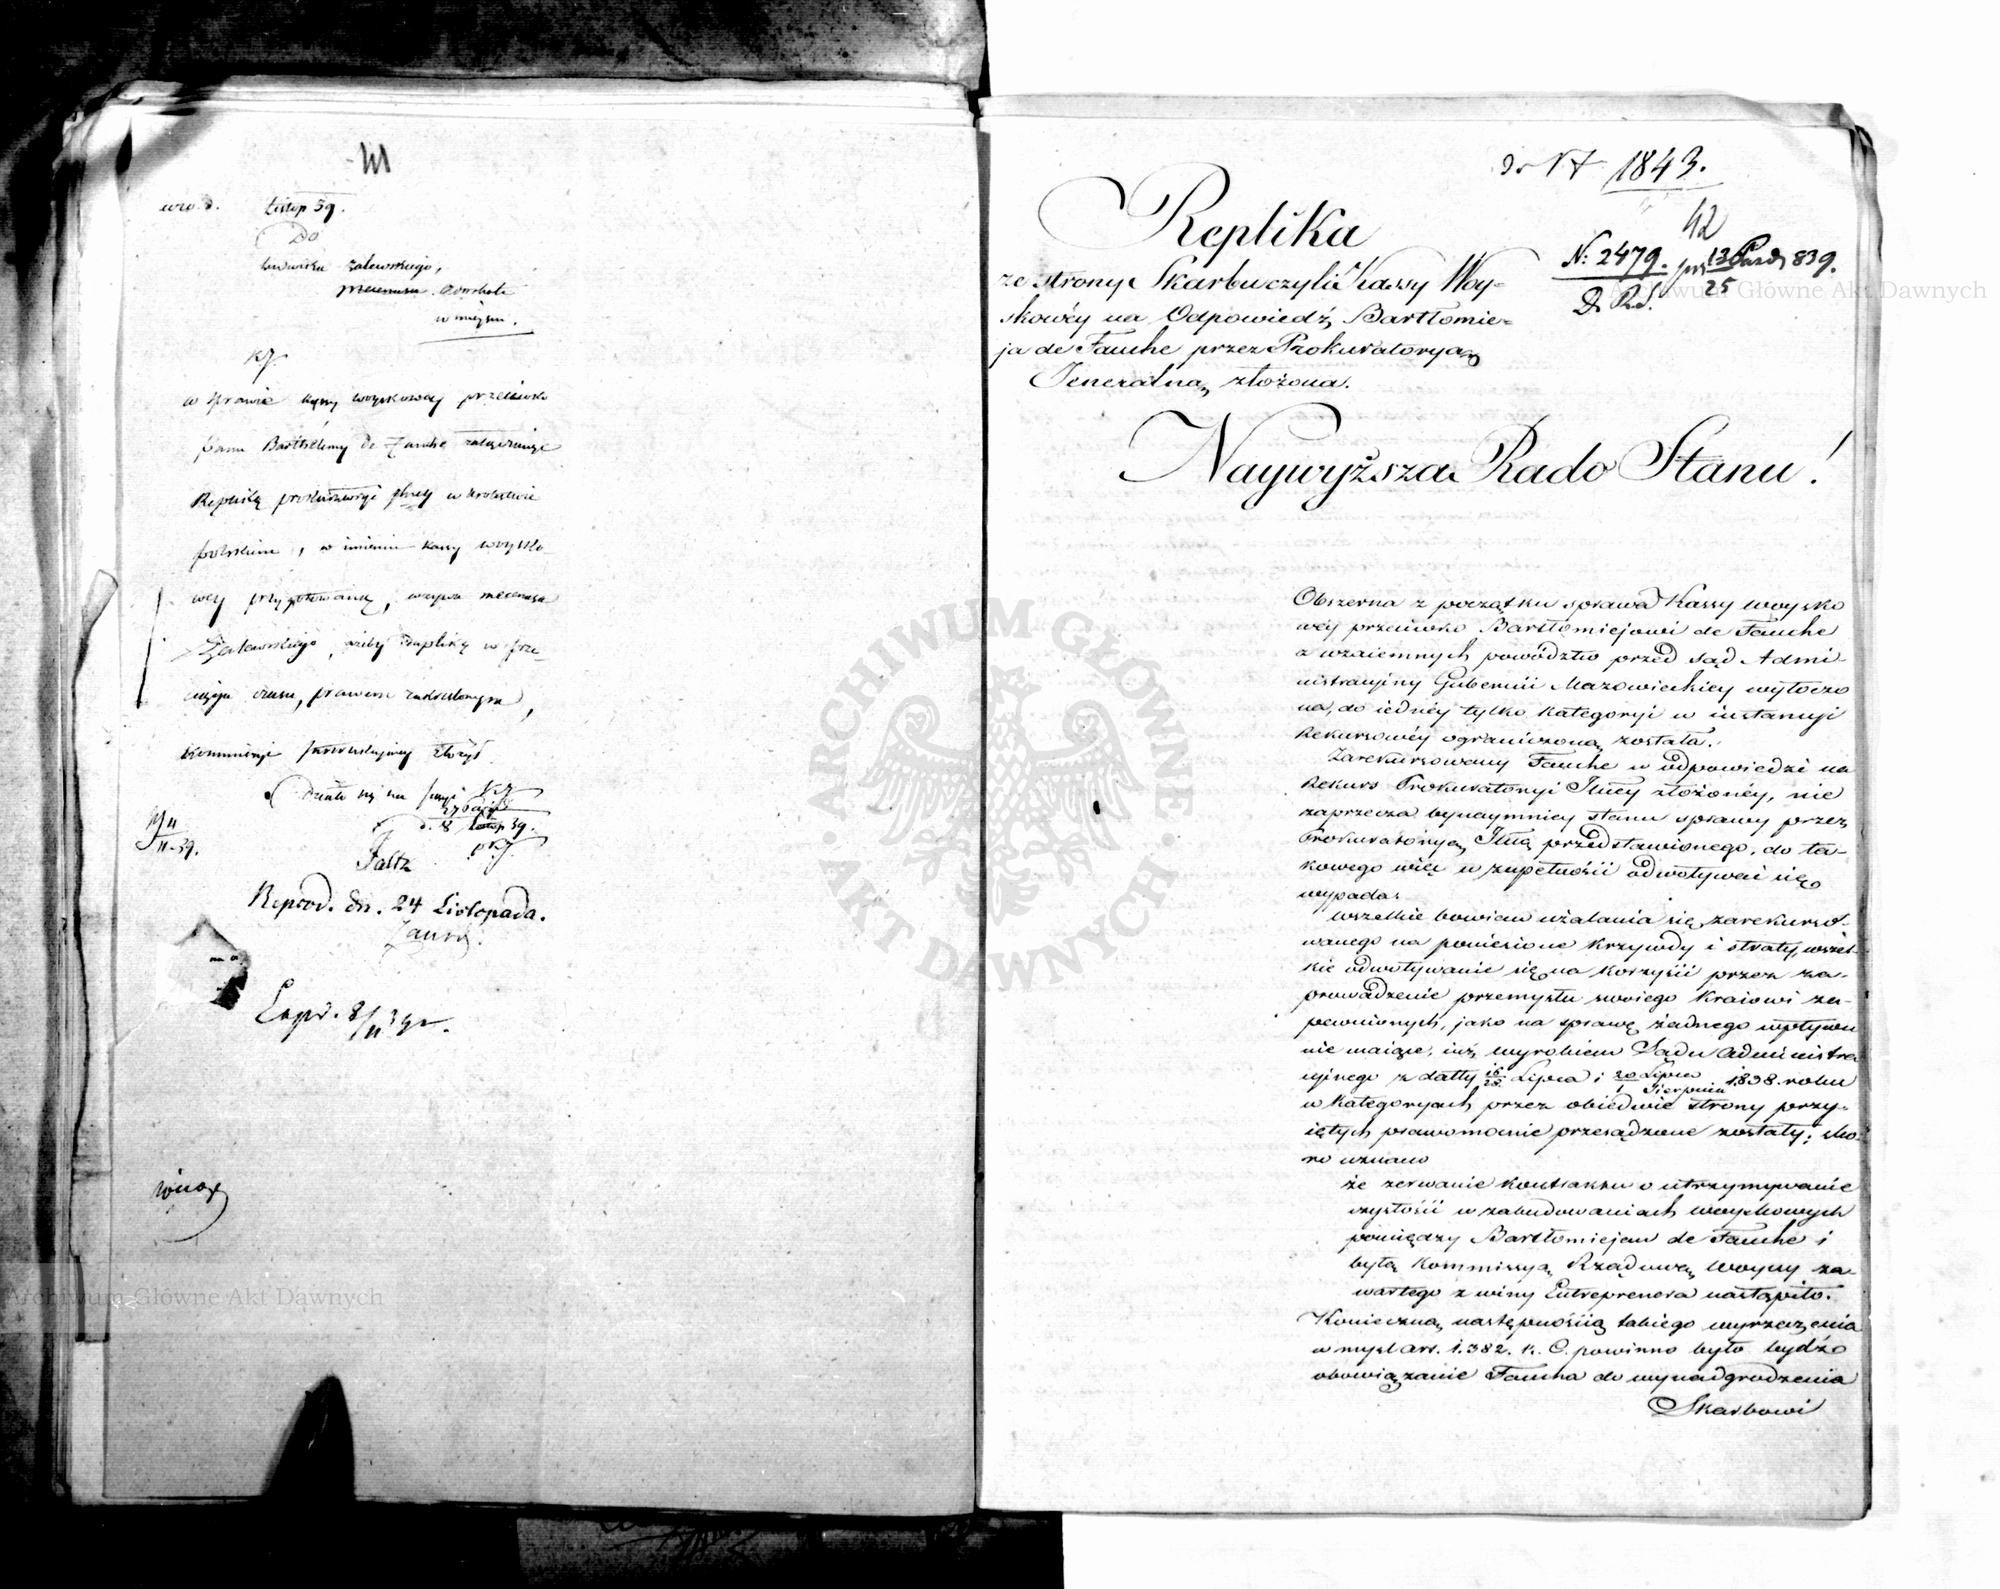 41
Listop 39.
Do
Ludwika Zalewskiego,
Mecenasa Adwokata
w miejscu.
w sprawie kassy woyskowey przeciwko
panu Barthélemy de Fauche załączając
Replikę prokuratoryi Jnley w Królestwie
polskim, w imieniu kassy woysko-
wey przygotowaną, wzywa mecenasa
Zalewskiego, ażeby Duplikę w prze-
ciągu czasu, prawem zakreślonym,
kommissyi instrukcyjney złożył.
Działo się na sessyi
d. 8 Listop 39.
Faltz
Reprod. dn. 24 Listopada.
Exp. 8/11 39 r.
wnoszę
1843.
42
Replika
N: 2479. 13/25 Pazd. 839.
ze strony Skarbu czyli Kassy Woy-
skowéy na Odpowiedź Bartłomie-
ja de Fauche przez Prokuratoryą
Jeneralną złożona.
Naywyższa Rado Stanu!
Obszerna z początku sprawa Kassy woysko
wéy przeciwko Bartłomiejowi de Fauche
z wzaiemnych powództw przed Sąd Admi-
nistracyiny Gubernii Mazowieckiey wytoczo
na, do iednéy tylko kategoryi w instancyi
Rekursowéy ograniczoną została.
Zarekursowany Fauche w odpowiedzi na
Rekurs Prokuratoryi Jlnéy złożonéy, nie
zaprzecza bynaymniey stanu sprawy przez
Prokuratoryą Jlną przedstawionego, do ta-
kowego więc w zupełności odwoływać się
wypada.
Wszelkie bowiem użalania się zarekurso-
wanego na poniesione krzywdy i straty, wszel-
kie odwoływanie się na korzyści przez za-
prowadzenie przemysłu swoiego Kraiowi za-
pewnionych, jako na sprawę żadnego wpływu
nie maiące, iuż wyrokiem Sądu Administra
cyinego z datty 16/28 Lipca i 20 Lipca/1 Sierpnia 1838. roku
w kategoryach przez obiedwie strony przy-
iętych prawomocnie przesądzone zostały; sko-
ro uznano
że zerwanie kontraktu o utrzymywanie
czystości w zabudowaniach woyskowych
pomiędzy Bartłomiejem de Fauche i
byłą Kommissyą Rządową Woyny za-
wartego z winy Entreprenera nastąpiło.
Konieczną następnością takiego wyrzeczenia
w myśl art. 1.382. K. C. powinno było bydź
obowiązanie Faucha do wynadgrodzenia
Skarbowi
Archiwum Główne Akt Dawnych
Archiwum Główne Akt Dawnych
ARCHIWUM GŁÓWNE · AKT DAWNYCH ·